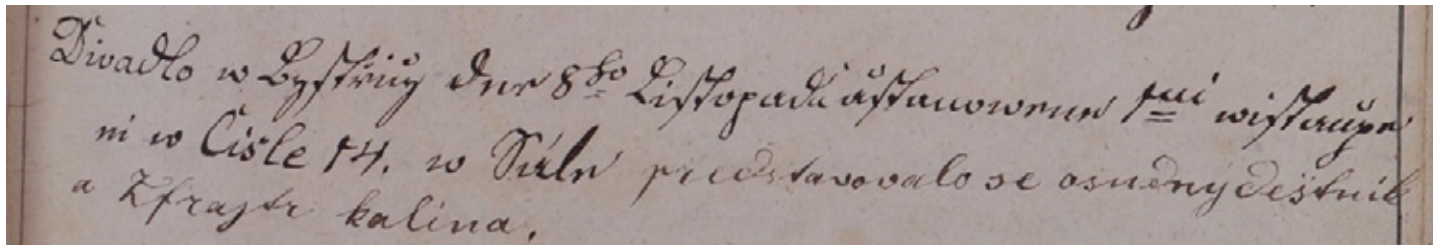 Divadlo w Bystřicy dne 8ho Listopadu ustanowene 1ni wistaupe
ni w Čisle 14. w Sále představovalo se osudny deštnik
a Kfrajtr kalina.